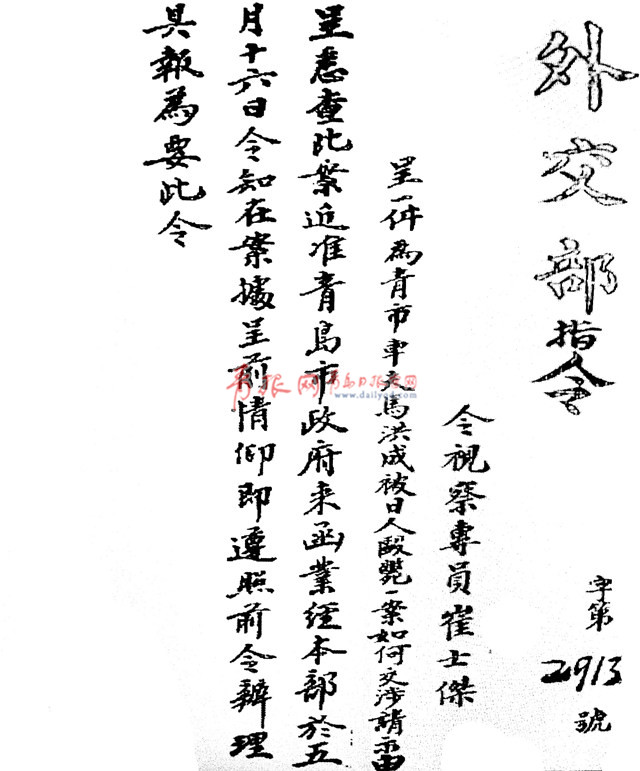 外交部指令
字第2913號
令視察專員崔士傑
呈一件為青市車夫馬洪成被日人毆斃一案如何交涉請示由
呈悉查此案近准青島市政府来函業經本部於五
月十六日令知在案據呈前情仰即遵照前令辦理
具報為要此令
青报网 青岛日报报业
www.dailyqd.com